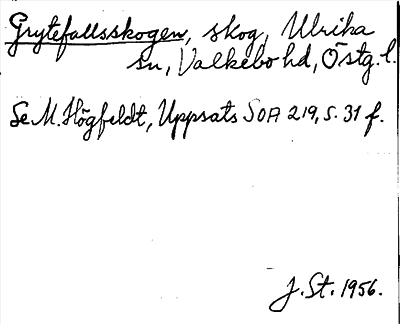 Grytefallsskogen, skog, Ulrika
sn, Valkebo hd, Östg. l.
Se M. Högfeldt, Uppsats SOA 219, s. 31 f.
J. St. 1956.